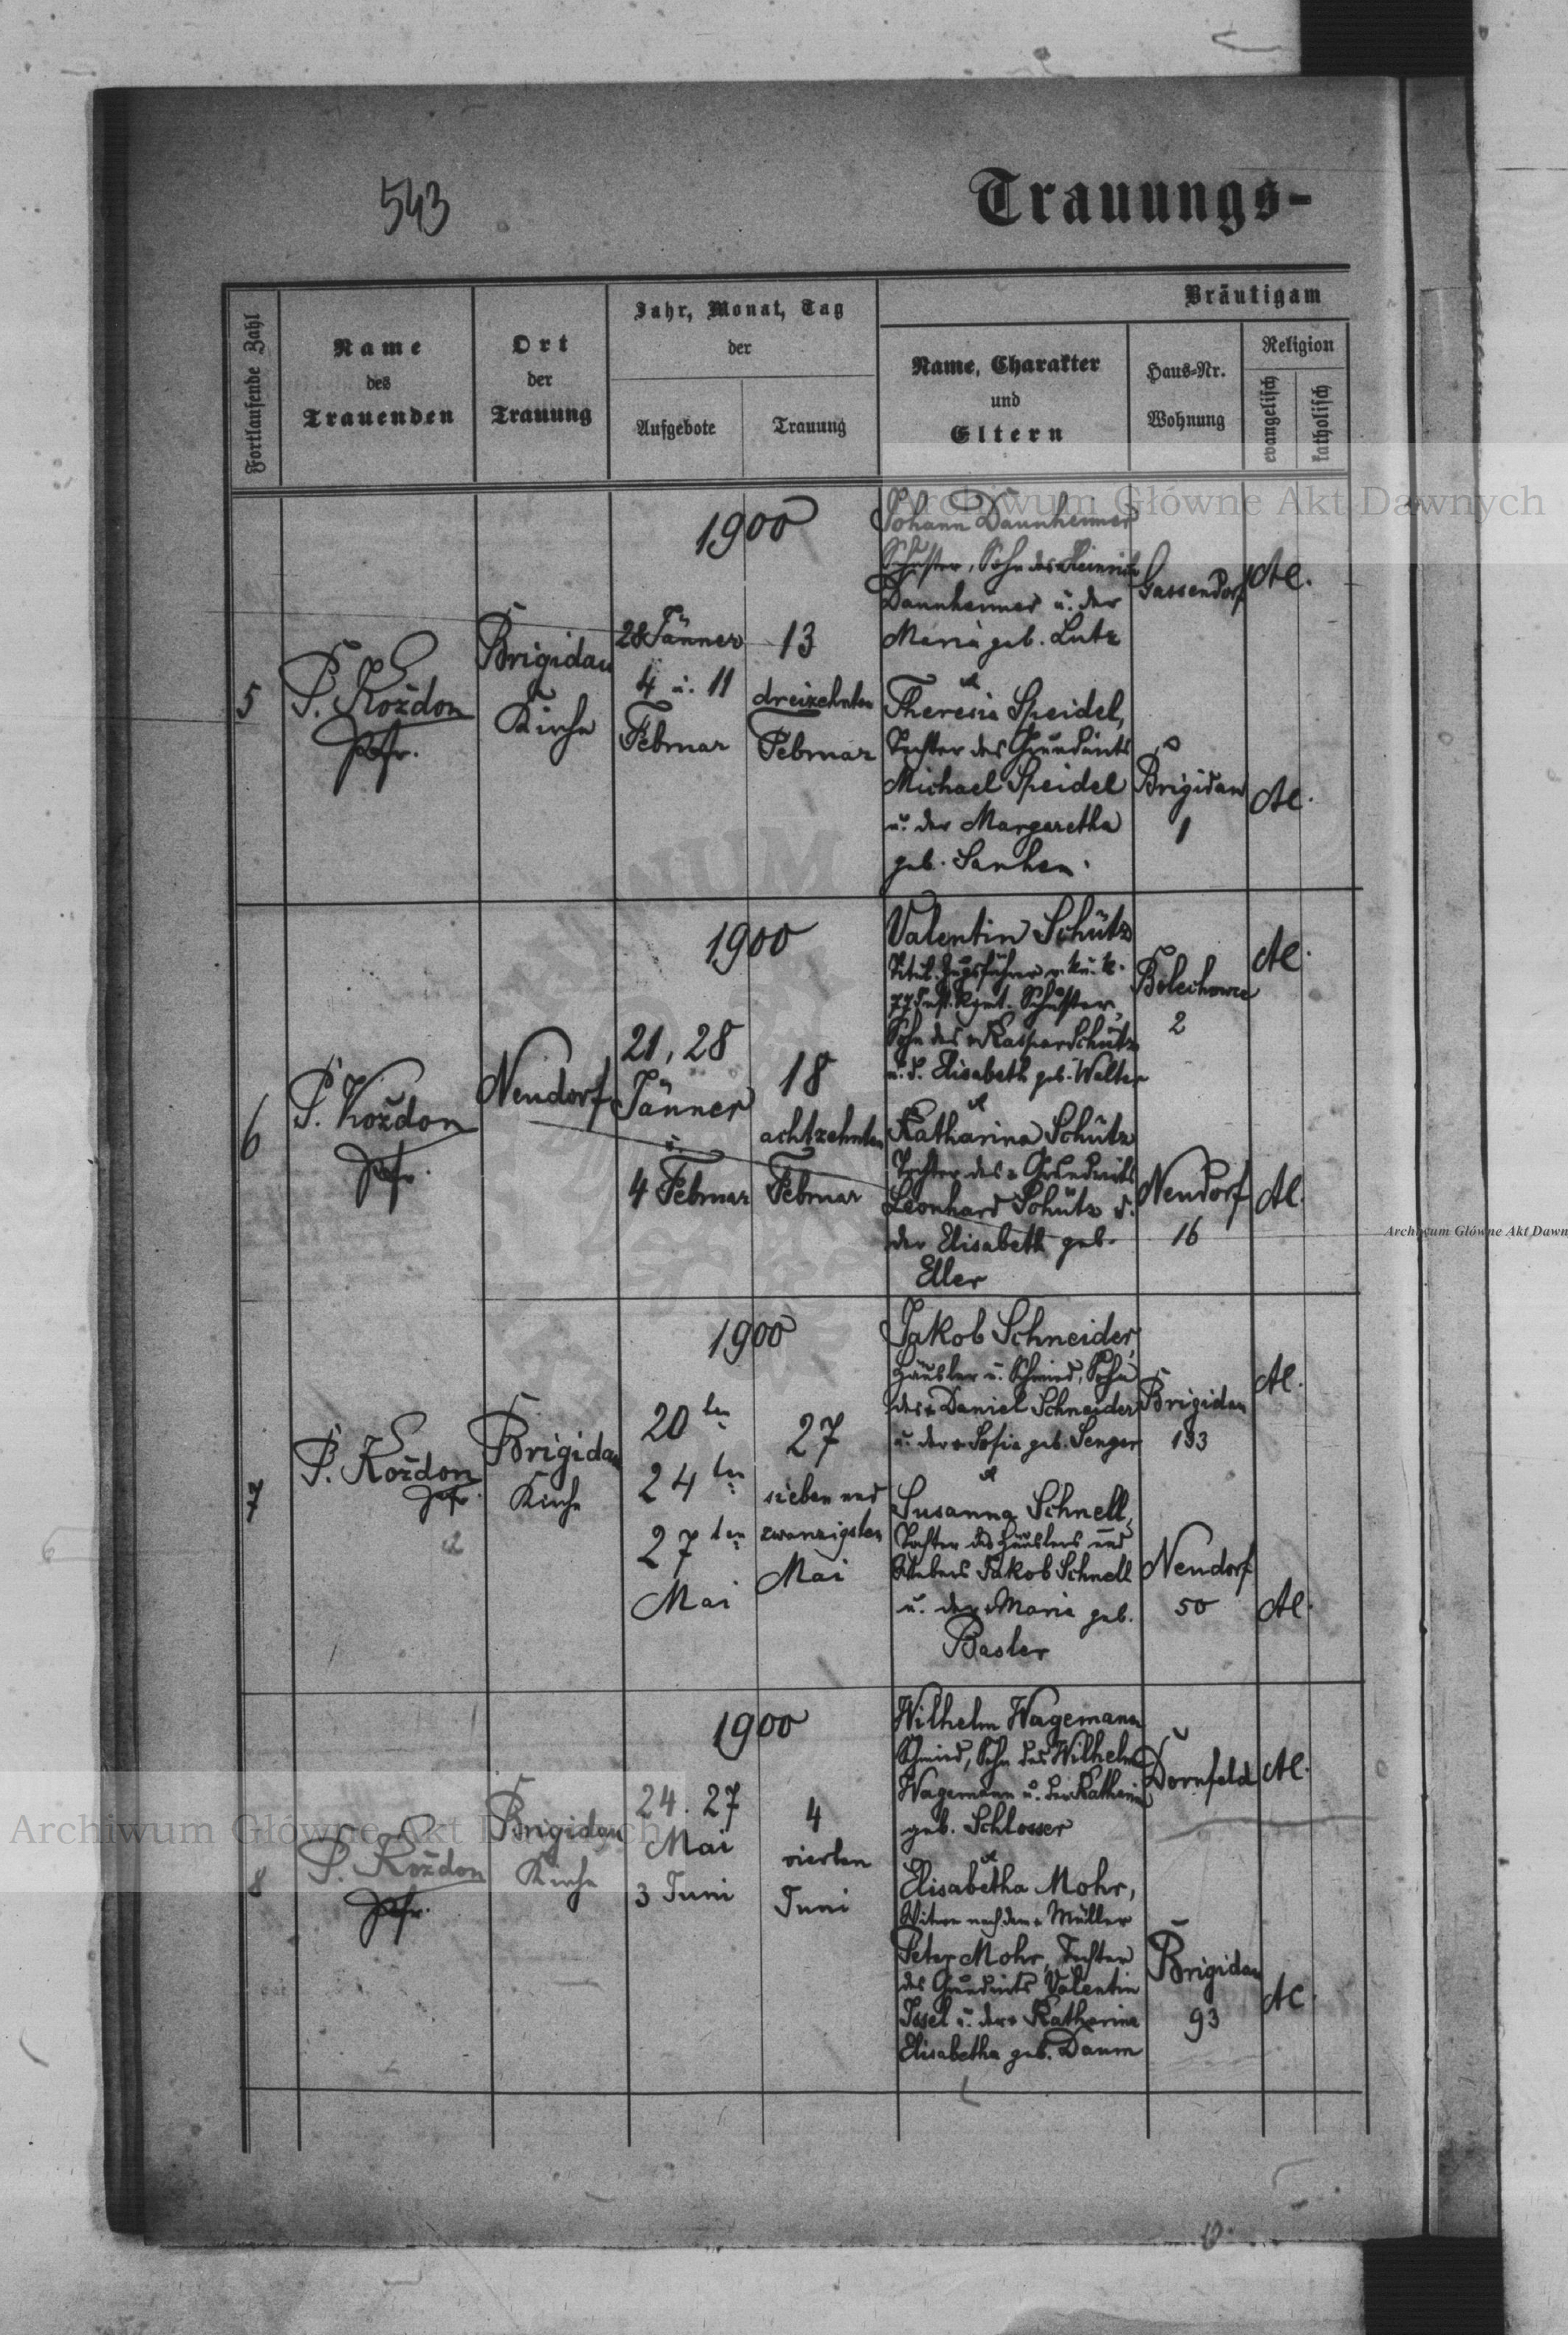 543
Trauungs-
Fortlaufende Zahl
Name
des
Trauenden
Ort
der
Trauung
Jahr, Monat, Tag
der
Aufgebote
Trauung
Bräutigam
Name, Charakter
und
Eltern
Haus-Nr.
Wohnung
Religion
evangelisch
katholisch
5
P. Koždon
Pfr.
Brigidau
Kirche
1900
28 Jänner
4 u. 11
Februar
13
dreizehnten
Februar
Johann Dannheimer
Schuster, Sohn des Heinrich
Dannheimer u. der
Maria geb. Lutz
Gassendorf
A.C.
u
Theresia Speidel,
Tochter des Grundwirts
Michael Speidel
u. der Margaretha
geb.
Brigidau
1
A.C.
6
P. Koždon
Pfr.
Neudorf
1900
21, 28
Jänner
u.
4 Februar
18
achtzehnten
Februar
Valentin Schütz
Titul. Zugsführer v. k. u. k.
77 Inft. Rgmt. Schuster,
Sohn des Kaspar Schütz
u. d. Elisabeth geb. Walter
Bolechowce
2
A.C.
u
Katharina Schütz
Tochter des Grundwirts
Leonhard Schütz u.
der Elisabeth geb.
Eller
Neudorf
16
A.C.
7
P. Koždon
Pfr.
Brigidau
Kirche
1900
20ten
24ten
27ten
Mai
27
sieben und
zwanzigsten
Mai
Jakob Schneider,
Häusler u. Schmied, Sohn
des Daniel Schneider
u. der Sofia geb. Senger
Brigidau
133
A.C.
u
Susanna Schnell,
Tochter des Häuslers und
Webers Jakob Schnell
u. der Maria geb.
Basler
Neudorf
50
A.C.
8
P. Koždon
Pfr.
Brigidau
Kirche
1900
24. 27
Mai
3 Juni
4
vierten
Juni
Wilhelm Wagemann
Schmied, Sohn des Wilhelm
Wagemann u. der Katharina
geb. Schlosser
Dornfeld
A.C.
u
Elisabetha Mohr,
Witwe nach dem Müller
Peter Mohr, Tochter
des Grundwirts Valentin
Issel u. der Katharina
Elisabetha geb. Daum
Brigidau
93
A.C.
Archiwum Główne Akt Dawnych
Archiwum Główne Akt Dawn
Archiwum Główne Akt Dawnych